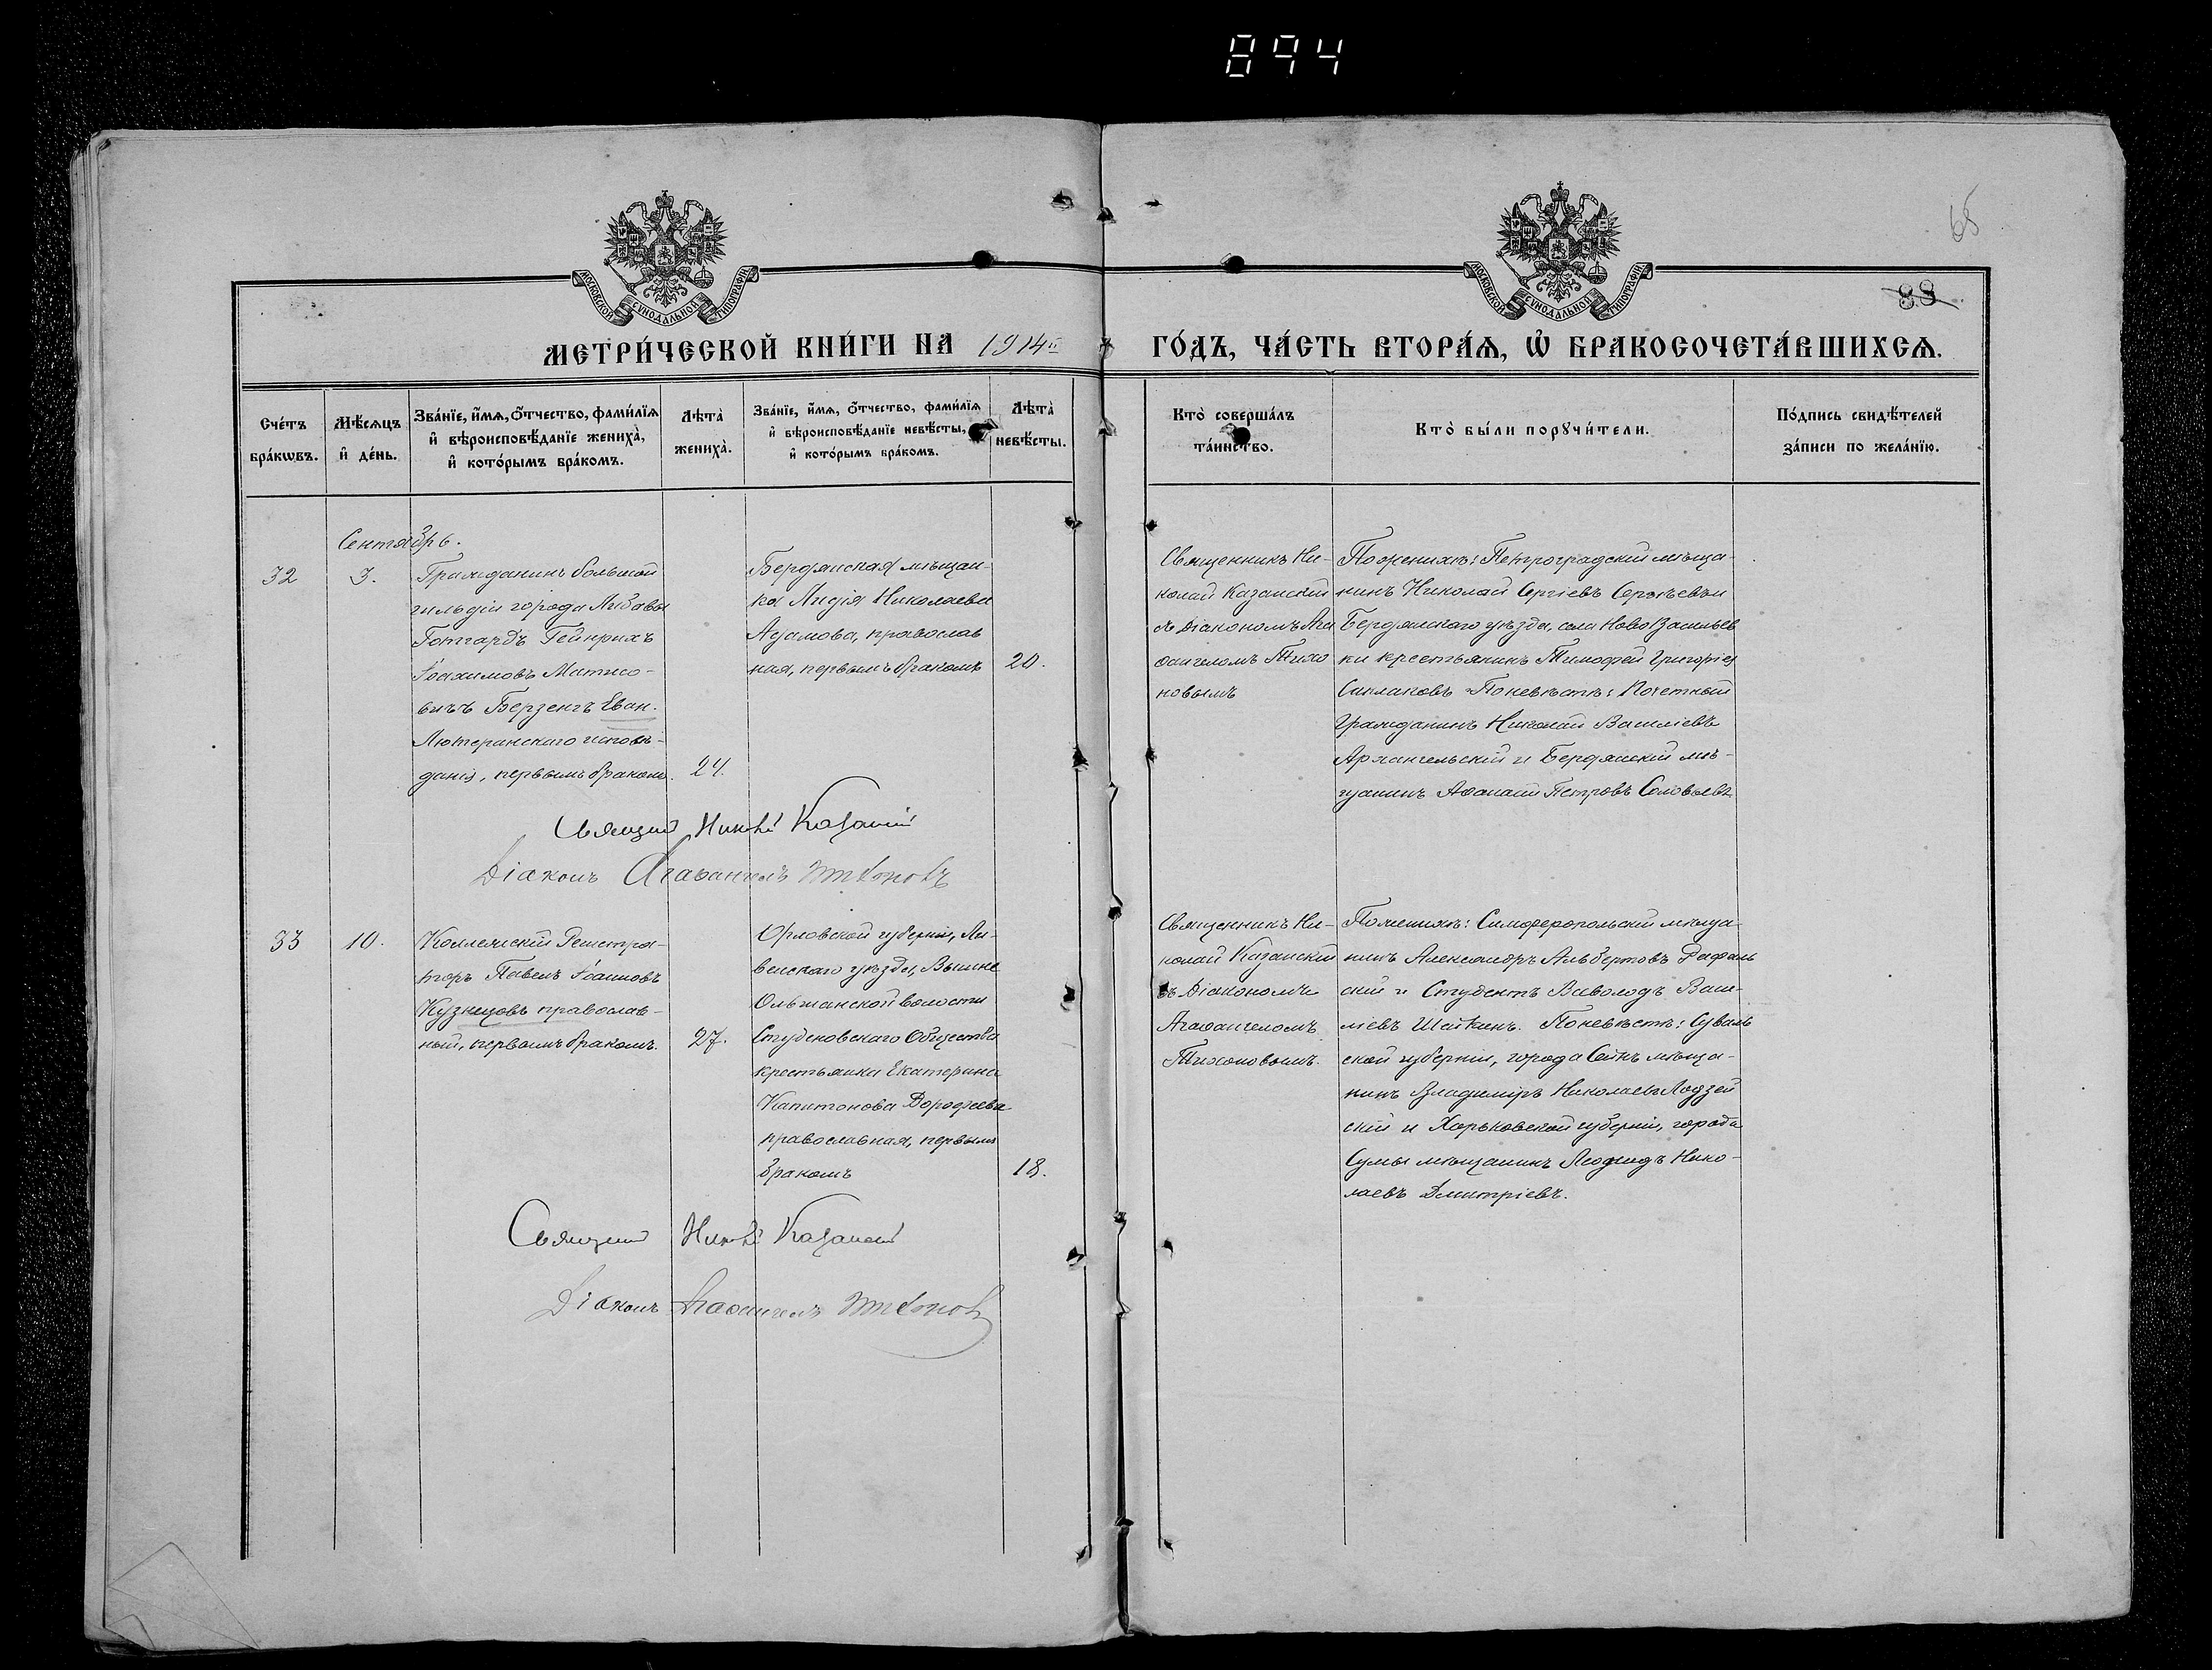 894
65
88
МОСКОВСКОЙ СѴНОДАЛЬНОЙ ТИПОГРАФІИ
МОСКОВСКОЙ СѴНОДАЛЬНОЙ ТИПОГРАФІИ
МЕТРИ́ЧЕСКОЙ КНИ́ГИ НА 1914й ГО́ДЪ, ЧА́СТЬ ВТОРА́Ѧ, Ѽ БРАКОСОЧЕТА́ВШИХСѦ.
Сче́тъ
бра́кѡвъ.
Мѣ́сѧцъ
и҆ де́нь.
Зва́нїе, и҆́мѧ, ѻ҆́тчество, фами́лїѧ
и҆ вѣроисповѣ́данїе жениха̀,
и҆ кото́рымъ бра́комъ.
Лѣта̀
жениха̀.
Зва́нїе, и҆́мѧ, ѻ҆́тчество, фами́лїѧ
и҆ вѣроисповѣ́данїе невѣ́сты,
и҆ кото́рымъ бра́комъ.
Лѣта̀
невѣ́сты.
Кто̀ соверша́лъ
та́инство.
Кто̀ бы́ли порꙋчи́тели.
По́дпись свидѣ́телей
за́писи по жела́нїю.
Сентябрь.
32
3.
Гражданинъ большой
гильдіи города Либавы
Готгардъ Гейнрихъ
Іоахимовъ Матисо-
вичъ Берзенгъ Еван.
Лютеранскаго исповѣ-
данія, первымъ бракомъ.
24.
Бердянская мѣщан-
ка Лидія Николаева
Адамова, православ
ная, первымъ бракомъ
20.
Священникъ Ни-
колай Казанскій
съ Діакономъ Ага
ѳангеломъ Тихо
новымъ
По женихѣ: Петроградскій мѣща-
нинъ Николай Сергіевъ Сергѣевъ и
Бердянскаго уѣзда, села Ново Васильев
ки крестьянинъ Тимофей Григоріев
По невѣстѣ: Почетный
Гражданинъ Николай Василіевъ
Архангельскій и Бердянскій мѣ-
щанинъ Аѳанасій Петровъ Соловьевъ
Священникъ Николай Казанскій
Діаконъ Агаѳангелъ Тихоновъ
33
10.
Коллежскій Регистра-
торъ Павелъ Іоанновъ
Кузнецовъ православ-
ный, первымъ бракомъ.
27.
Орловской губерніи, Ли-
венскаго уѣзда, Вышне
Ольшанской волости
Студеновскаго Общества
крестьянка Екатерина
Капитонова Дорофеева
православная, первымъ
бракомъ
18.
Священникъ Ни-
колай Казанскій
съ Діакономъ
Агаѳангеломъ
Тихоновымъ.
По женихѣ: Симферопольскій мѣща-
нинъ Александръ Альбертовъ
скій и Студентъ Всеволодъ Васи-
ліевъ Шейкинъ. По невѣстѣ: Суваль
ской губерніи, города Сейнъ мѣща-
нинъ Владиміръ Николаевъ Лодзей
скій и Харьковской губерніи, города
Сумы мѣщанинъ Леонидъ Нико-
лаевъ Дмитріевъ.
Священникъ Николай Казанскій
Діаконъ Агаѳангелъ Тихоновъ